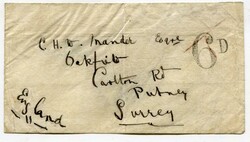 C. H. D. Mander Esqre
Oakfield
Carlton Rd
Putney
Surrey
England
6D